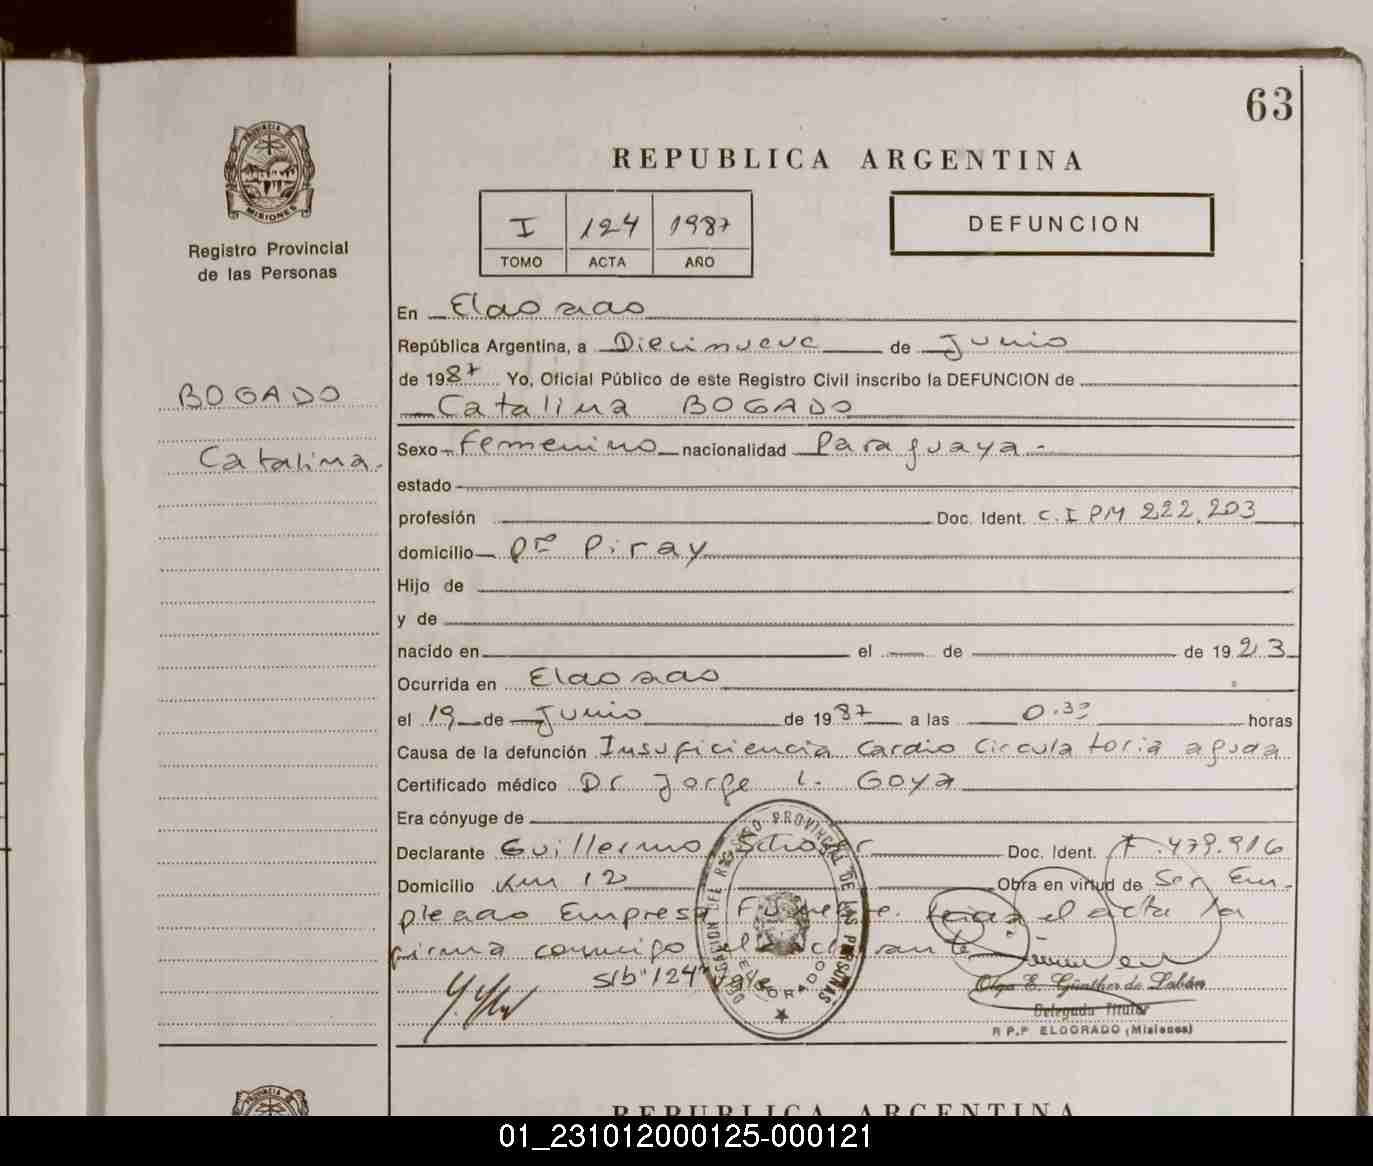 63
PROVINCIA DE
MISIONES
Registro Provincial
de las Personas
REPUBLICA ARGENTINA
I 124 1987
TOMO ACTA AÑO
DEFUNCION
BOGADO
Catalina.
En Eldorado
República Argentina, a Diecinueve de Junio
de 1987 Yo, Oficial Público de este Registro Civil inscribo la DEFUNCION de
Catalina BOGADO
Sexo Femenino nacionalidad Paraguaya.-
estado
profesión Doc. Ident. C.I PM 222.203
domicilio Pto Piray
Hijo de
y de
nacido en el de de 1923
Ocurrida en Eldorado
el 19 de Junio de 1987 a las 0.30 horas
Causa de la defunción Insuficiencia Cardio Circulatoria aguda
Certificado médico Dr Jorge L. GOYA
Era cónyuge de
Declarante Guillermo Doc. Ident. 7.479.916
Domicilio Km 12 Obra en virtud de Ser Em-
pleado Empresa Funebre. el acta la
firma conmigo el declarante
S/b "124" Vale
DELEGACION DEL REGISTRO PROVINCIAL DE LAS PERSONAS
ELDORADO
Olga E. Günther de Labán
Delegada Titular
R.P.P ELDORADO (Misiones)
REPUBLICA ARGENTINA
01_231012000125-000121